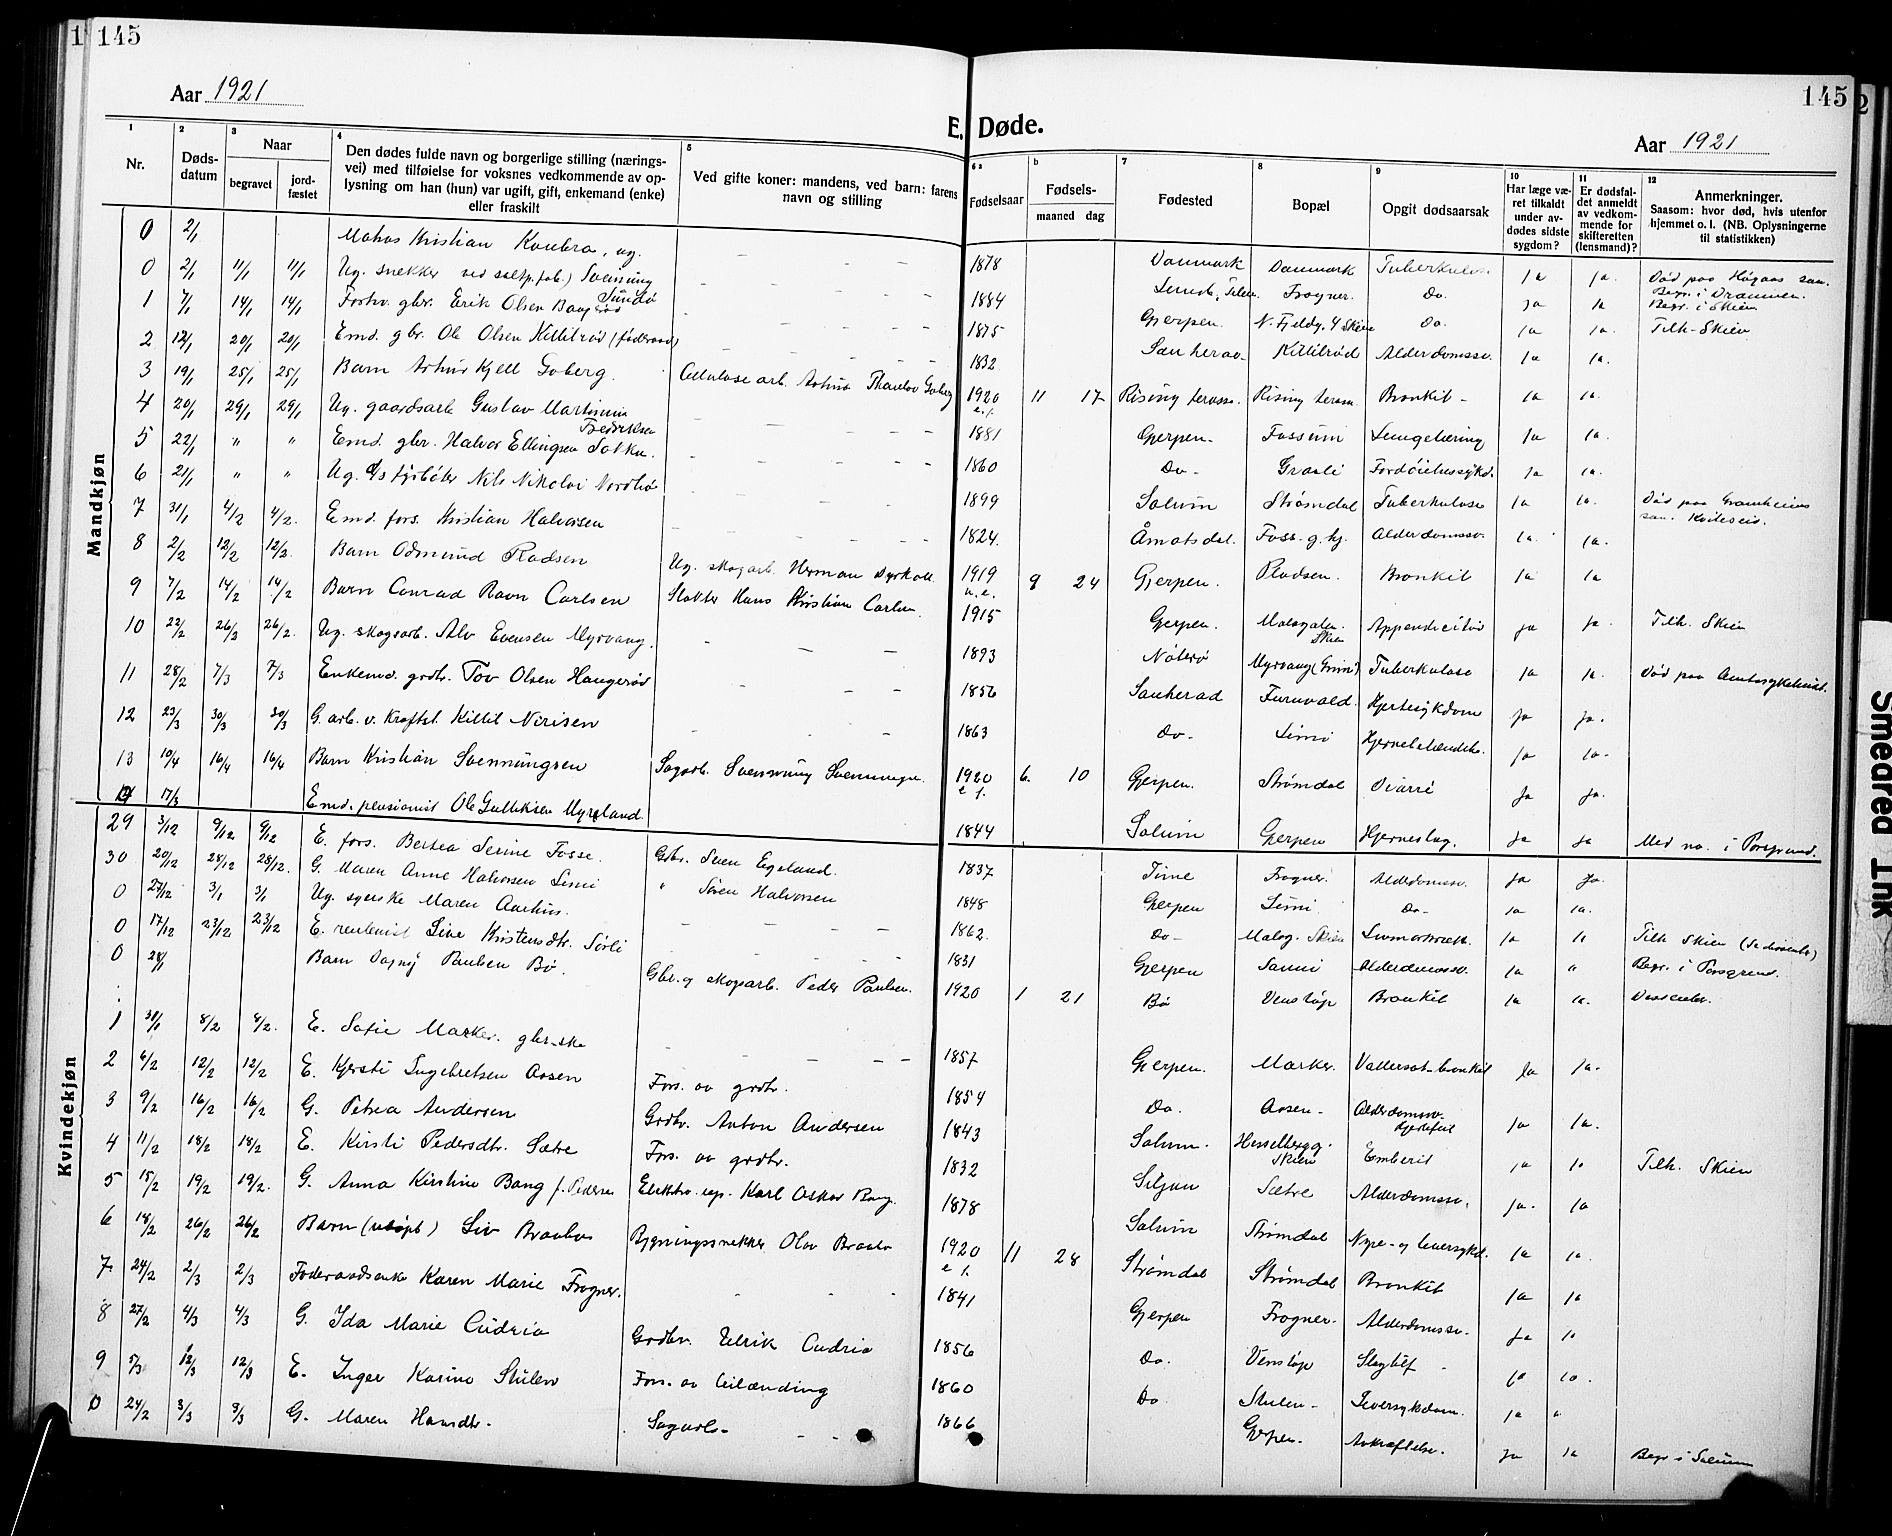 145
Aar 1921
E. Døde.
145
Aar 1921
1 2 3 4 5 6 a b 7 8 9 10 11 12
Nr. Døds-datum Naar begravet jord-fæstet Den dødes fulde navn og borgerlige stilling (nærings-vei) med tilføielse for voksnes vedkommende av op-lysning om han (hun) var ugift, gift, enkemand (enke) eller fraskilt Ved gifte koner: mandens, ved barn: farens navn og stilling Fødselsaar Fødsels- maaned dag Fødested Bopæl Opgit dødsaarsak Har læge væ-ret tilkaldt under av-dødes sidste sygdom? Er dødsfal-det anmeldt av vedkom-mende for skifteretten (lensmand)? Anmerkninger. Saasom: hvor død, hvis utenfor hjemmet o. l. (NB. Oplysningerne til statistikken)
Mandkjøn
0 2/1 Kristian ug. – – – 1878 Danmark Danmark Ja Ja. Død paa Høgaas san. Begr. i Drammen.
0 2/1 11/1 11/1 Ug. snekker Sveinung Sundø – – – 1884 Frogner. Do. Ja Ja Begr. i Skien
1 7/1 14/1 14/1 Forhv. gbr. Erik Olsen – – – 1875 Gjerpen. Do. Ja Ja. Tilh. Skien
2 12/1 20/1 20/1 Emd. gbr. Ole Olsen Kittilrød (føderaad) – – – 1832 Sauherad Kittilrød Alderdomssv. Ja Ja.
3 19/1 25/1 25/1 Barn Arthur Kjell Goberg. Cellulosearb. Arthur Thanlov Goberg 1920 e.f. 11 17 Rising terasse. Rising terasse Bronkit – Ja Ja.
4 20/1 29/1 29/1 Ug. gaardsarb. Gustav Martinius Fredriksen – – – 1881 Gjerpen. Fossum Lungetæring Ja Ja.
5 22/1 " " Emd. gbr. Halvor Ellingsen – – – 1860 Do. Graali Fordøielsessykd. Ja Ja.
6 21/1 " " Ug. fyrbøter Nils Nikolai Nordbø – – – 1899 Solum Strømdal Tuberkulose Ja Ja. Død paa Grauheims san. Kviteseid.
7 31/1 4/2 4/2. Emd. fors. Kristian Halvorsen – – – 1824. Åmotsdal. Foss. g. hj. Alderdomssv. Ja. Ja.
8 2/2 12/2 12/2. Barn Odmund Pladsen Ug. skogarb. Herman Dyrkoll 1919 u.e. 9 24 Gjerpen. Pladsen. Bronkit Ja Ja
9 7/2 14/2 14/2 Barn Conrad Ravn Carlsen Slakter Hans Kristian Carlsen 1915 Gjerpen. Skien Appendicitis Ja Ja. Tilh. Skien
10 22/2 26/2 26/2. Ug. skogsarb. Alv Evensen Myrvang. – – – 1893 Nøterø Myrvang Tuberkulose Ja Ja. Død paa Amtssykehuset.
11 28/2 7/3 7/3 Enkemd. grdbr. Tov Olsen Haugerød – – – 1856 Sauherad Furuvald. Hjertesykdom Ja Ja.
12 23/3 30/3 30/3 G. arb. v. Kraftst. Kittil Nirisen – – – 1863 Do. Limi Ja Ja.
13 10/4 16/4 16/4 Barn Kristian Svennungsen Sagarb. Svennung Svennungsen 1920 e f. 6. 10 Gjerpen. Strømdal Diarré Ja Ja.
14 17/3 Emd. pensionist Ole Gulliksen Myrland 1844 Solum Gjerpen Hjerneslag. Ja Ja Med no. i Porsgrund.
Kvindekjøn
29 3/12 9/12 9/12 E. fors. Bertea Serine Fosse. Gdbr. Sven Egeland. 1837 Time Frogner. Alderdomssv. Ja Ja.
30 20/12 28/12 28/12. G. Maren Anne Halvorsen Limi " Søren Halvorsen 1848 Gjerpen Limi Do. Ja Ja.
0 27/12 3/1 3/1 Ug. syerske Maren Aarhus. – – – 1862. Do. Skien Ja Ja Tilh. Skien
0 17/12 23/12 23/12 E. rentenist Line Kirstensdtr. Sørli – – – 1831 Gjerpen Sanni Alderdomssv. Ja " Begr. i Porsgrund.
0 28/1 Barn Dagny Paulsen Bø. Gbr. og skogsarb. Peder Paulsen. 1920 1 21 Bø Venstøp Bronkit Ja Ja.
1 30/1 8/2 8/2. E. Sofie Marker. gbr-ske – – – – 1857 Gjerpen. Marker. Ja Ja.
2 6/2 12/2 12/2 E. Kjersti Ingebretsen Aasen Fors. av grdbr. 1854 Do. Aasen. Alderdomssv. Hjertefeil Ja Ja.
3 9/2 16/2 16/2 G. Petrea Andersen Grdbr. Anton Andersen 1843 Solum. Hesselbergg. Skien Ja Ja Tilh. Skien
4 11/2 18/2 18/2 E. Kirsti Pedersdtr. Sætre Fors. av grdbr. 1832 Siljan Sætre Alderdomssv. Ja. Ja
5 15/2 19/2 19/2. G. Anna Kirstine Bang f. Pedersen Elektro. rep. Karl Oskar Bang. 1878 Solum Strømdal Nyre- og leversykd. Ja Ja.
6 18/2 26/2 26/2 Barn (udøpt) Liv Braaten Bygningssnekker Olav Braaten 1920 e f. 11 28 Strømdal Strømdal Bronkit Ja Ja
7 24/2 2/3 2/3 Føderaadsenke Karen Marie Frogner. 1841 Gjerpen Frogner. Alderdomssv. Ja Ja
8 27/2 4/3 4/3 G. Ida Marie Cudrio Grdbr. Ulrik Cudrio 1856 Do. Venstøp Slagtilf. Ja Ja.
9 5/3 12/3 12/3 E. Inger Karine Stulen Fors. av leilænding 1860 Do Stulen Leversykdom. Ja "
0 24/2 3/3 3/3 G. Maren Hansdtr. Sagarb. – – 1866 Gjerpen. Avkræftelse. Ja Ja Begr. i Solum
Smeared Ink